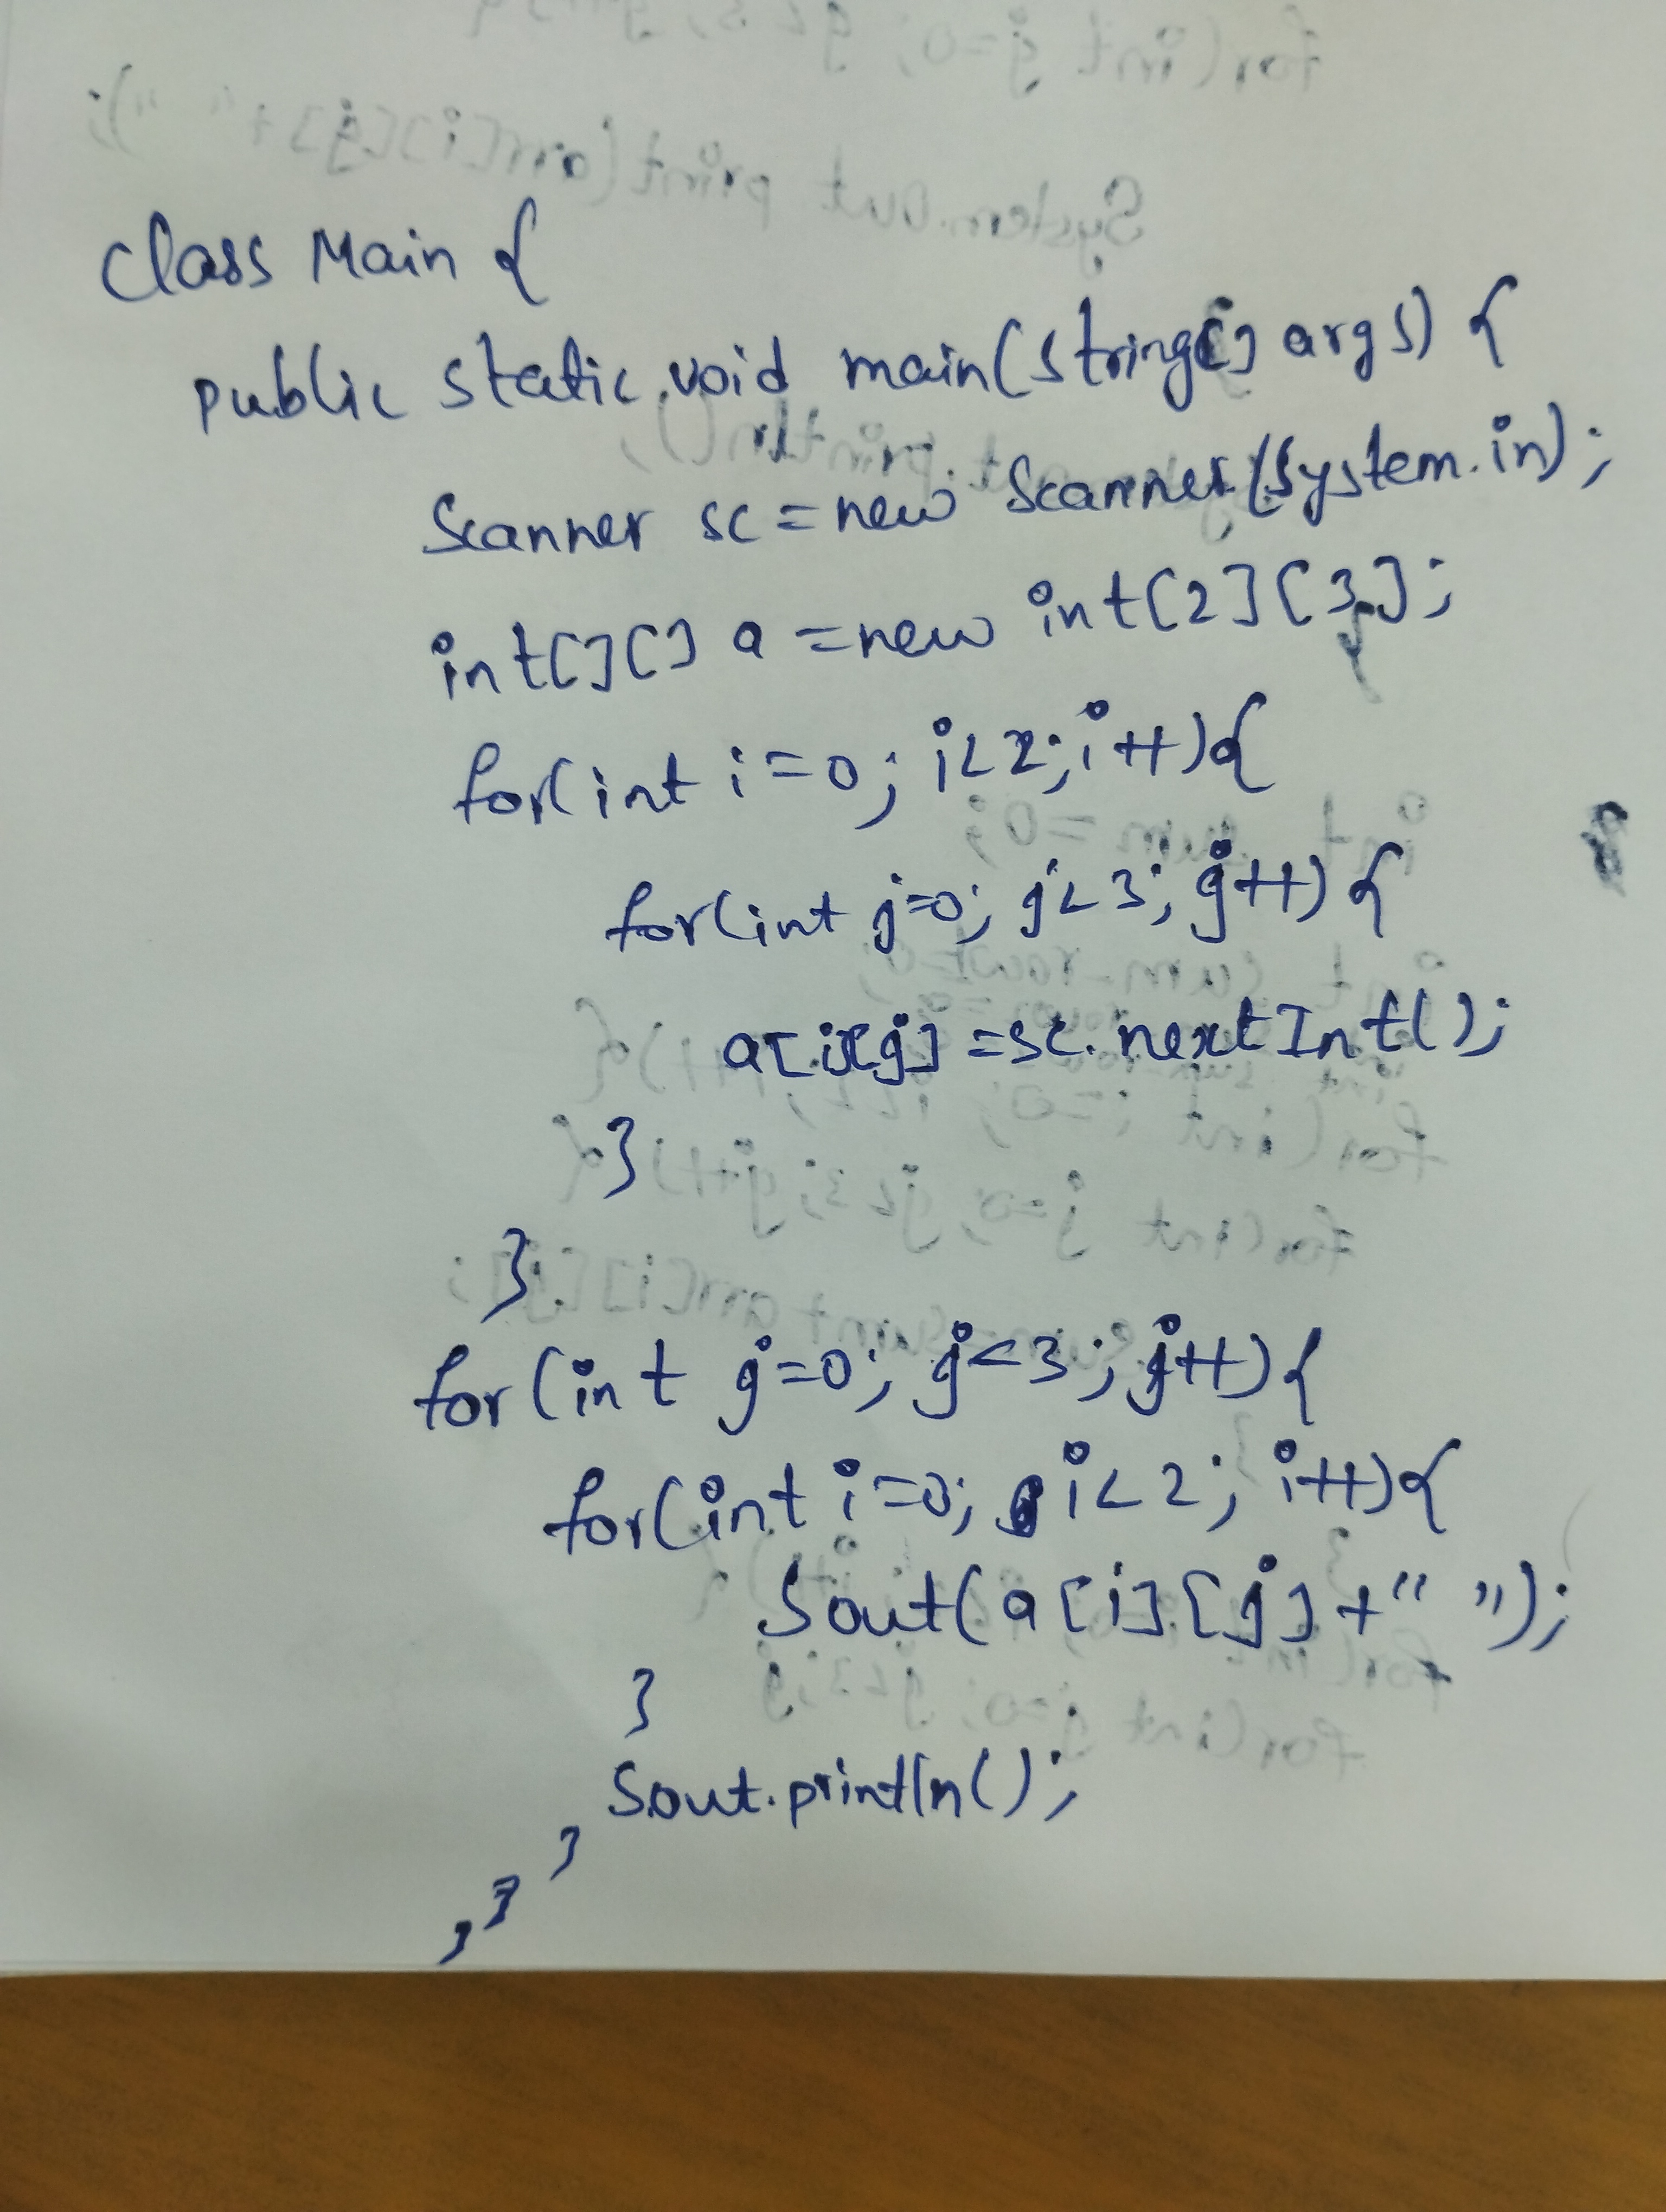 class Main {
public static void main(string[] args) {
Scanner sc = new Scanner(System.in);
int[][] a = new int[2][3];
for(int i=0; i<2; i++){
for(int j=0; j<3; j++){
a[i][j] = sc.nextInt();
}
}
for(int j=0; j<3; j++){
for(int i=0; i<2; i++){
Sout(a[i][j]+" ");
}
Sout.println();
}
}
}